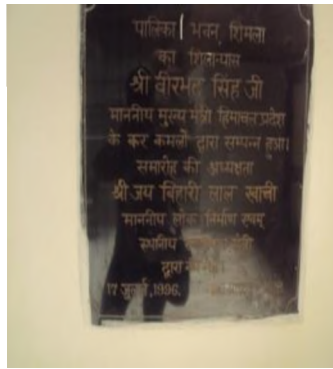 पालिका भवन, शिमला
का शिलान्यास
श्री वीरभद्र सिंह जी
माननीय मुख्य मंत्री हिमाचल प्रदेश
के कर कमलों द्वारा सम्पन्न हुआ।
समारोह की अध्यक्षता
श्री जय बिहारी लाल खाची
माननीय लोक निर्माण एवम्
स्थानीय
द्वारा
17 जुलाई, 1996.